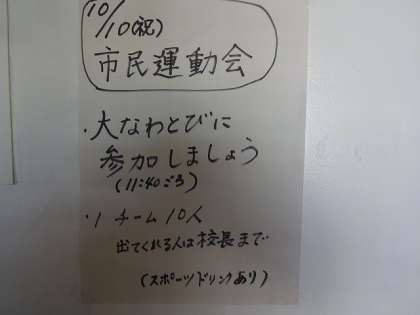 10/10(祝)
市民運動会
・大なわとびに
参加しましょう
(11:40ごろ)
・1チーム10人
出てくれる人は校長まで
(スポーツドリンクあり)